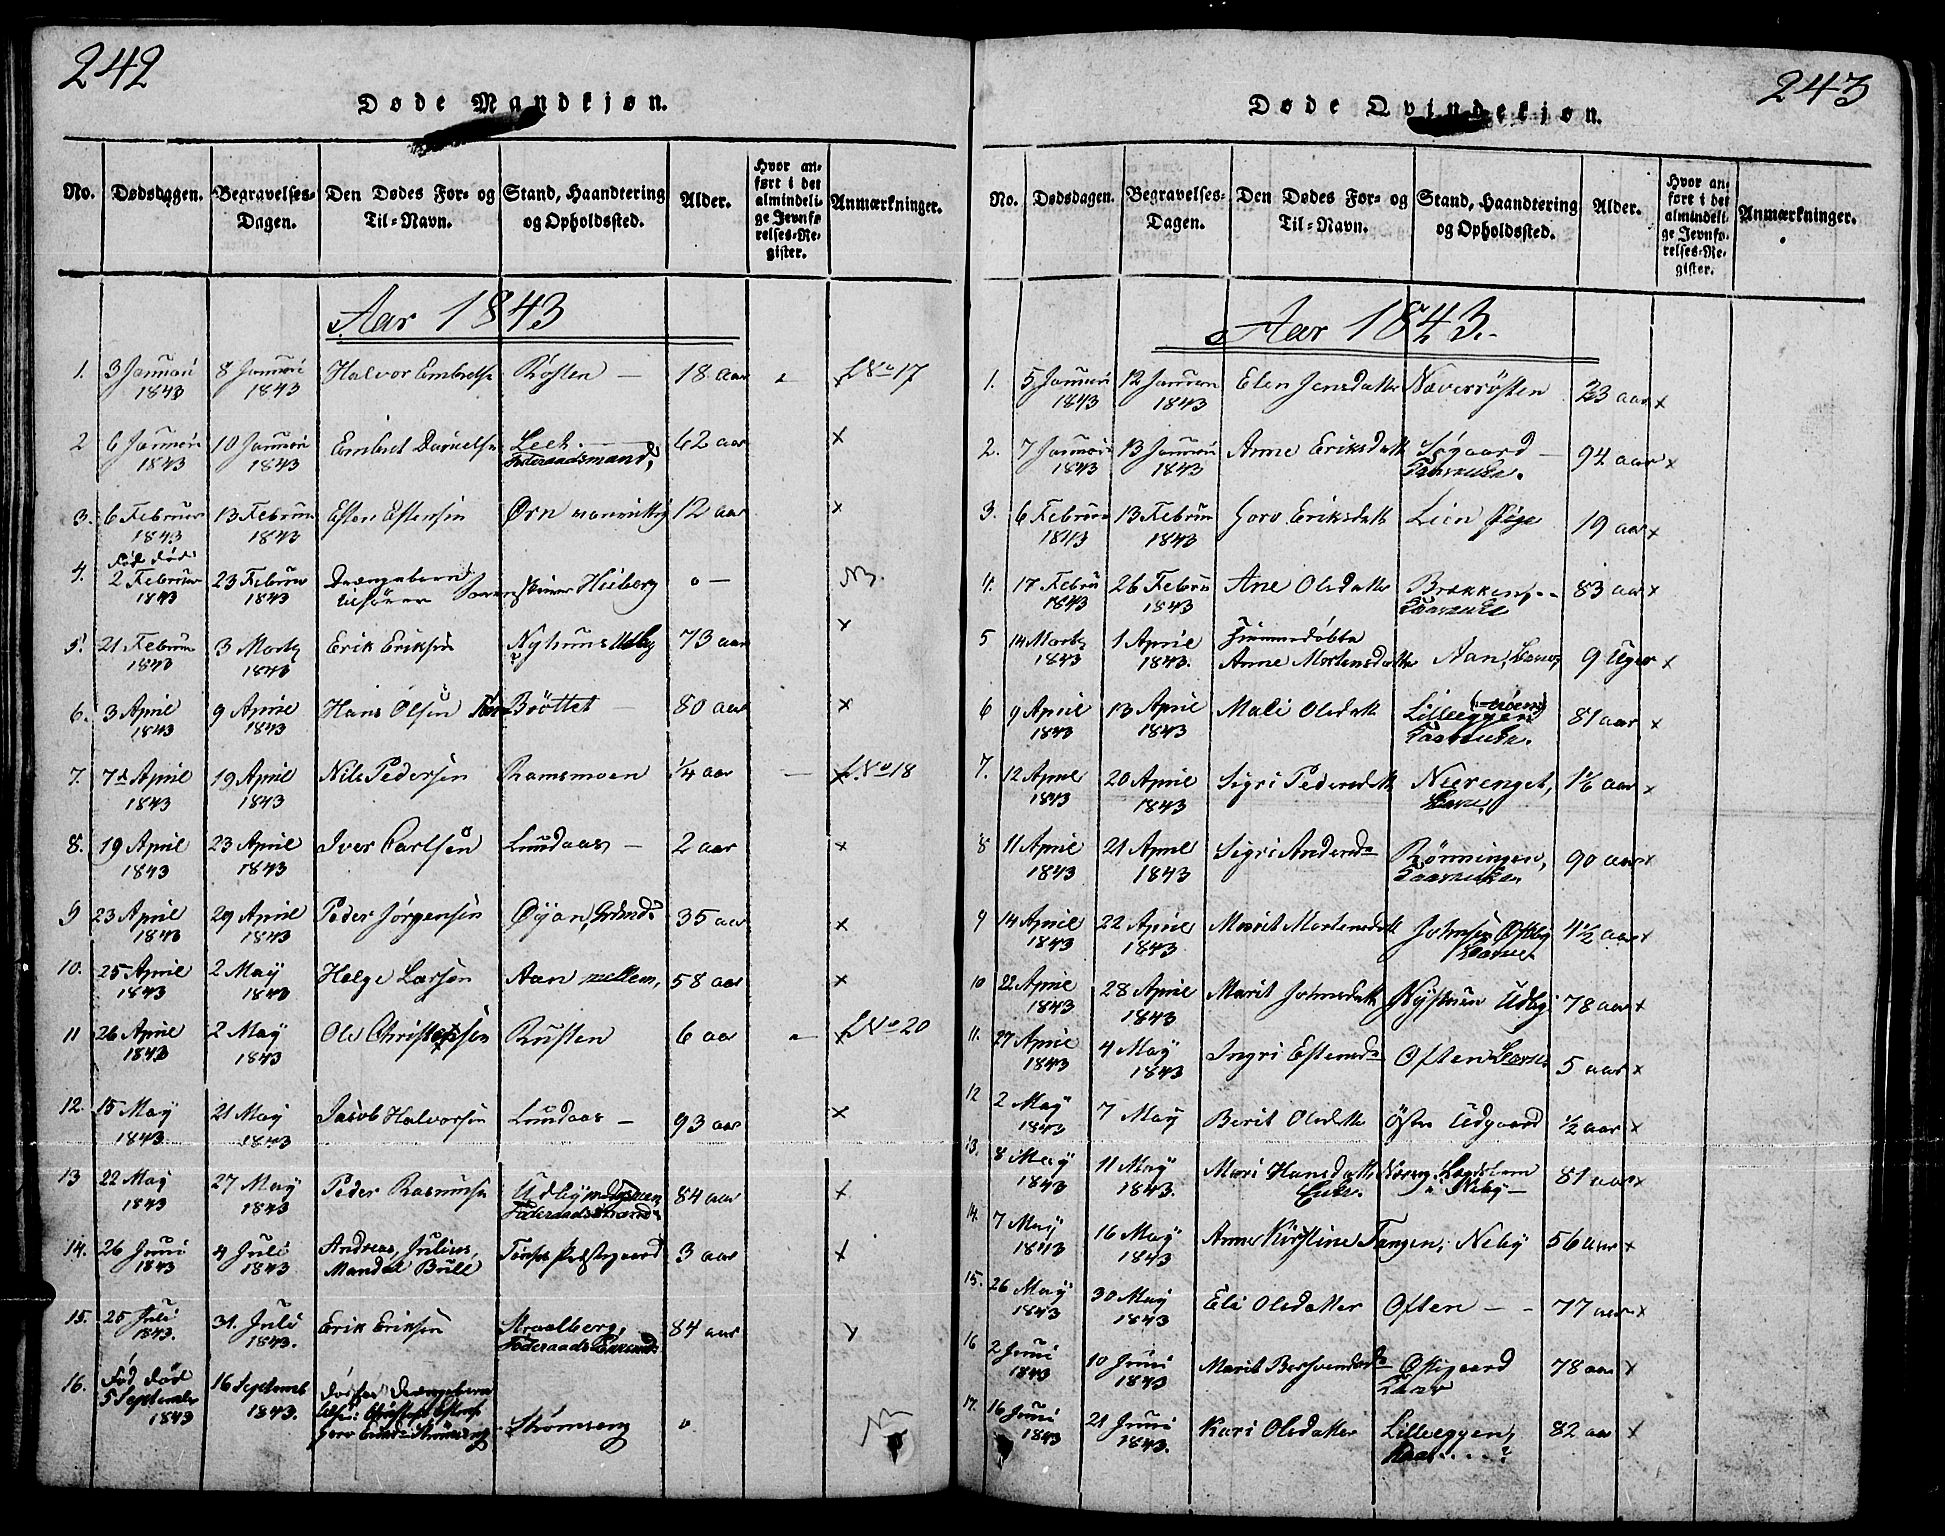 242
Døde Mandkjøn.
No. Dødsdagen. Begravelses-Dagen. Den Dødes For- og Til-Navn. Stand, Haandtering og Opholdssted. Alder. Hvor anført i det almindelige Jevnførelses-Register. Anmærkninger.
Aar 1843
1. 3 Januari 1843 8 Januari 1843 Halvor Embretse Røsten — 18 aar No 17
2 6 Januari 1843 10 Januari 1843 Embret Danielse 62 aar x
Føderaadsmand,
3. 6 Februar 1843 13 Februar 1843 Esten Estensen Ørn vanvittig 12 aar x
4. Fød død
2 Februar 1843 23 Februar 1843 Drængebarn Heiberg o —
5. 21 Februar 1843 3 Marty 1843 Erik Eriksen Nyhuus Udby 73 aar x
6. 3 April 1843 9 April 1843 Hans Olsen Brøttet — 80 aar x
7. 7de April 1843 19 April 1843 Nils Pedersen Ramsmoen 1/4 aar — x No 18
8. 19 April 1843 23 April 1843 Iver Carlsen Lundaas — 2 aar x
9 23 April 1843 29 April 1843 Peder Jørgensen Øyan, 35 aar x
10. 25 April 1843 2 May 1843 Helge Larsen Aan mellem, 58 aar x
11 26 April 1843 2 May 1843 Ole Christensen Rusten 6 aar x No 20
12. 15 May 1843 21 May 1843 Jacob Halvorsen Lundaas — 93 aar x
13 22 May 1843 27 May 1843 Peder Rasmusse Udby 84 aar x
Føderaadsmand
14. 26 Juni 1843 4 Juli 1843 Andreas, Julius, Mandal Bull Præstegaard 3 aar x
15. 25 Juli 1843. 31. Juli 1843. Erik Eriksen Straalberg, 84 aar x
16. Fød Død
5 September 1843 16 Septemb 1843. Drængebarn
Strømseng o
243
Døde Qvindekjøn.
No. Dødsdagen. Begravelses-Dagen. Den Dødes For- og Til-Navn. Stand, Haandtering og Opholdssted. Alder. Hvor anført i det almindelige Jevnførelses-Register. Anmærkninger.
Aar 1843.
1. 5 Januari 1843 12 Januari 1843 Elen Jensdatter Næverrøsten 23 aar x
2. 7 Januari 1843 13 Januari 1843 Anne Eriksdatt Søgaard — 94 aar x
3. 6 Februar 1843 13 Februar 1843 Goro Eriksdatt Lien Pige 19 aar x
4. 17 Febru 1843 26 Februar 1843 Ane Olsdatter Brækken 83 aar x
5 14 Marty 1843 1 April 1843. Hiemmedøbte
Anne Mortensdatter Aan, 9 Uger x
6 9 April 1843 13 April 1843 Mali Olsdatt Lilleeggen 81 aar x
7. 12 April 1843 20 April 1843 Sigri Pedersdatt Neerenget, 1 1/6 aar x
8 11 April 1843 21 April 1843 Sigri Andersd Rønningen, 90 aar x
9 14 April 1843 22 April 1843. Marit Mortensdatt 4 1/2 aar x
10 22 April 1843 28 April 1843 Marit Johnsdatt Nyhuus Udby 78 aar x
11. 27 April 1843 4 May 1843 Ingri Estensd Østen 5 aar x
12 2 May 1843 7 May Berit Olsdatter Udgaard 1/2 aar x
13. 8 May 1843 11 May 1843. Mari Hansdatter Lægdslem i Neby — 81 aar x
Enke.
14. 7 May 1843 16 May 1843 Anne Kirstine Tangen, Neby 56 aar x
15. 26 May 1843 30 May 1843 Eli Olsdatter Østen — - 77 aar x
16 2 Juni 1843 10 Juni 1843 Marit Bersvendsd Østgaard 78 aar x
17. 16 Juni 1843 21 Juni 1843. Kari Olsdatter Lilleeggen, 82 aar x